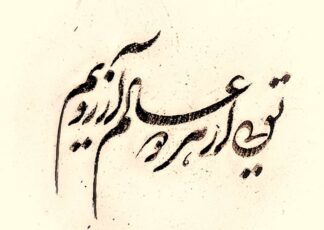 تویی از هر دو عالم آرزویم